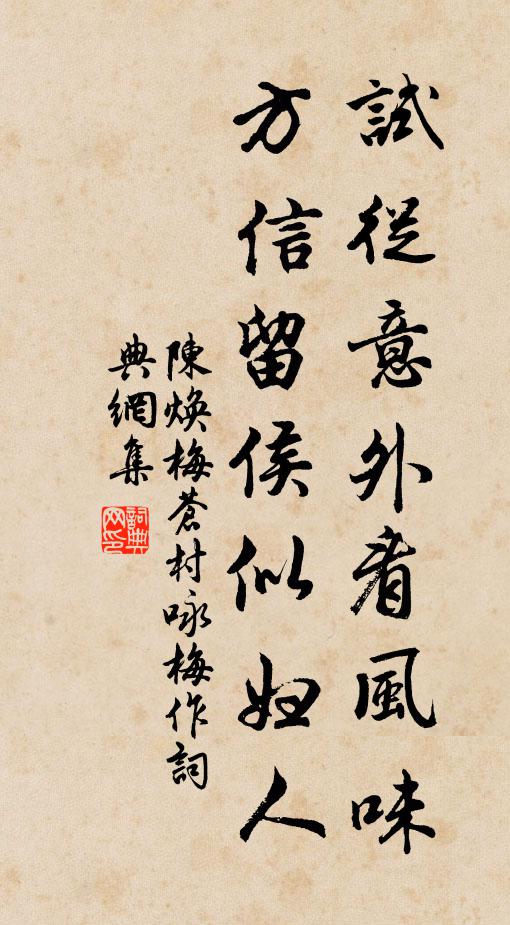 試從意外看風味
方信留侯似婦人
陳焕梅蒼村咏梅作詞
典網集
詞典
网印